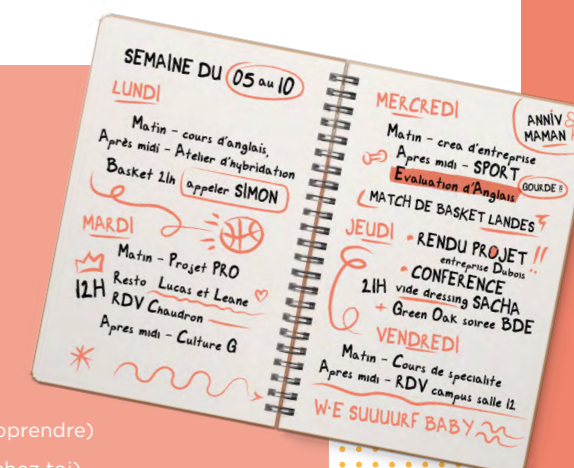 SEMAINE DU 05 au 10
LUNDI
Matin - cours d'anglais,
Après midi - Atelier d'hybridation
Basket 21h appeler SIMON
MARDI
Matin - Projet PRO
12H Resto Lucas et Leane
RDV Chaudron
Apres midi - Culture G
ANNIV
MAMAN
MERCREDI
Matin - crea d'entreprise
Apres midi - SPORT
Evaluation d'Anglais
GOURDE !!
MATCH DE BASKET LANDES
JEUDI
• RENDU PROJET !!
entreprise Dubois
• CONFERENCE
21H vide dressing SACHA
+ Green Oak soiree BDE
VENDREDI
Matin - Cours de specialite
Apres midi - RDV campus salle 12
W.E SUUUURF BABY
pprendre)